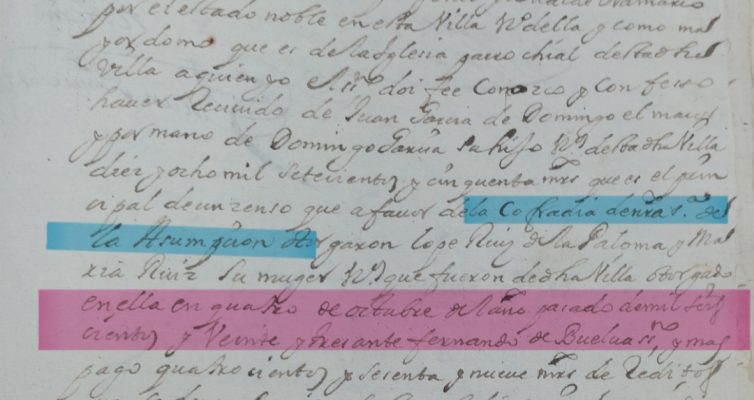 por el estado noble en esta Villa Vº della y como ma
yordomo que es de la Iglesia parrochial desta dha
Villa a quien yo el ssnº doi fee Conozco y Confeso
haver Recivido de Juan Garcia de Domingo el maior
y por mano de Domingo Garcia su hijo Vº desta dha Villa
diez y ocho mil setecientos y cinquenta mrs que es el prin
cipal de un zenso que a favor de la Cofradia de nra sª de
la Asumpcion otorgaron lope Ruiz de la Paloma y Ma
ria Ruiz su muger Vºs que fueron de dha Villa otorgado
en ella en quatro de octubre del año pasado de mil seis
cientos y Veinte y tres ante fernando de Buelua ssnº y mas
pago quatrocientos y sesenta y nueve mrs de Reditos